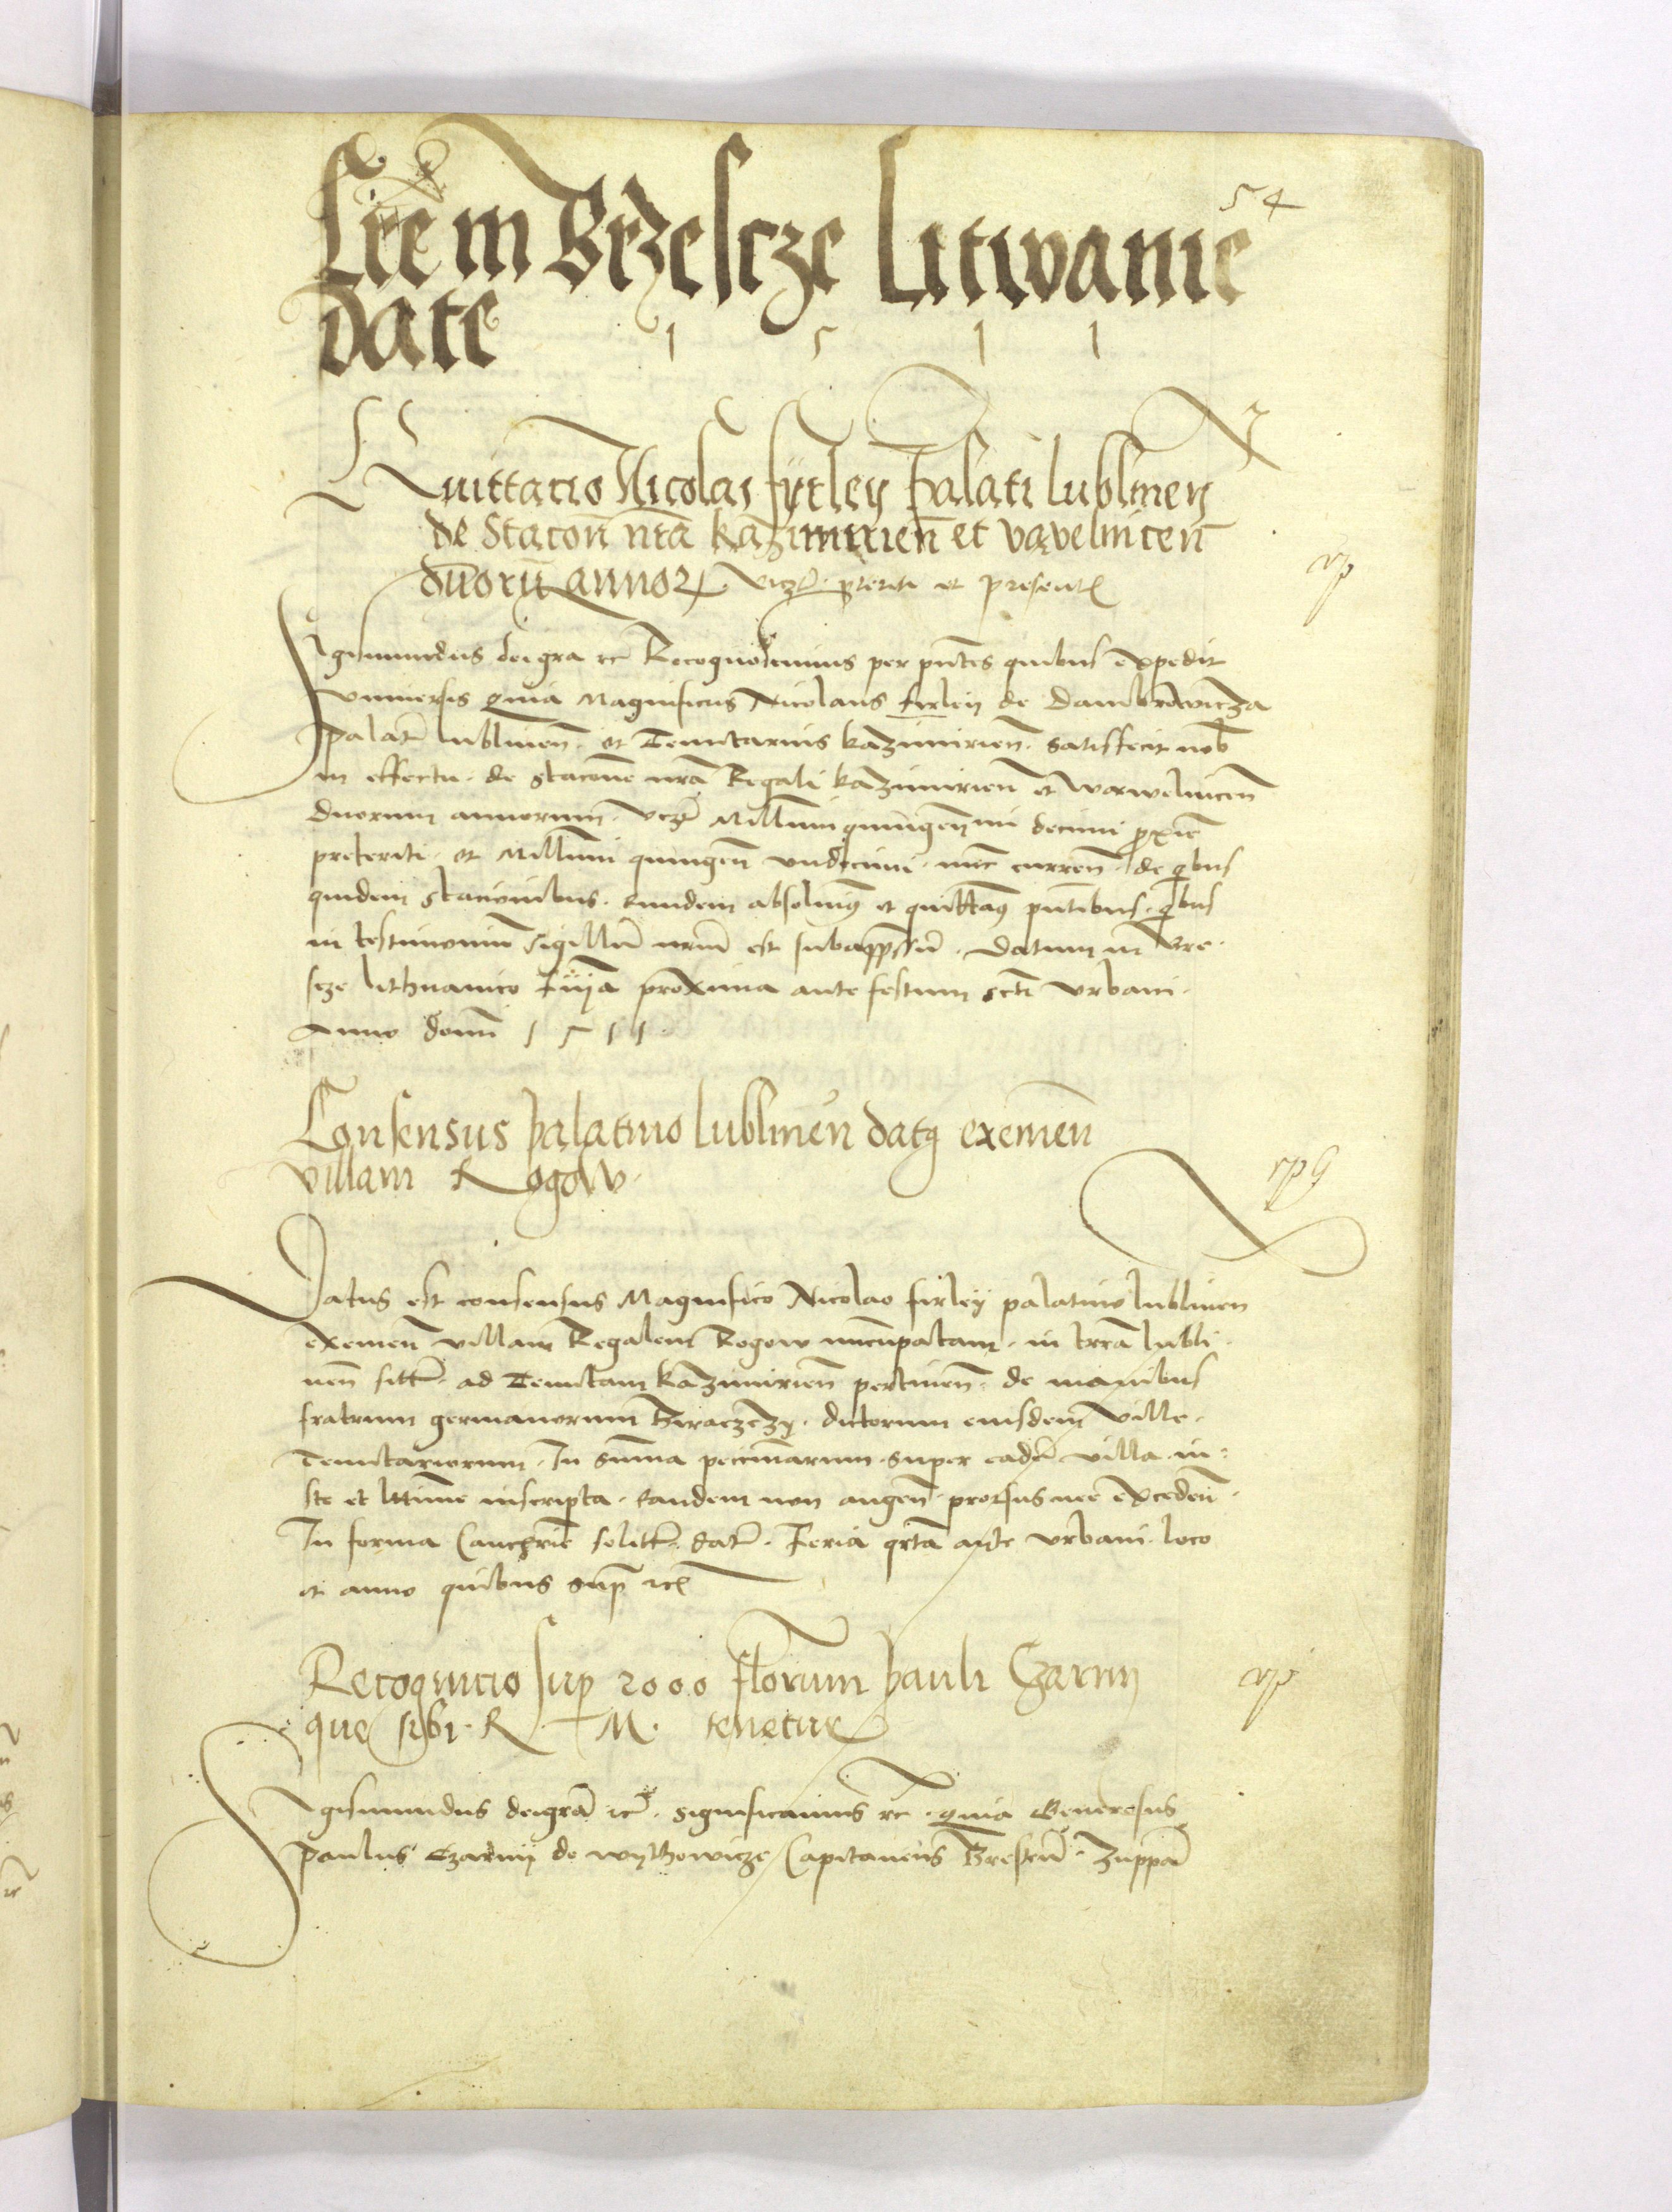 54
Lr̄e in Brzescze Litwanie
date 1 5 1 1
Quittacio Nicolai firleÿ Palati lublineñ
de Stacoñ nr̄a kazimirieñ et vąvelniceñ
duorū annoꝝ vczꝫ preteriti et presentꝭ
Sigismundus dei gra ꝛc Recognoscimus per pn̄tes quibus expedit
vniuersis quia Magnificus Nicolaus firleÿ de Dambrowicza
palatꝫ lublineñ et Tenutarius kazimirieñ satisfecit nob
in effectu de stacōne nr̄a Regali kazimirieñ et Wawelniceñ
duorum annorum vczꝫ Millm̄i quingenñmi decimi ꝓxīe
preteriti et Millm̄i quingeñ vndecimi nūc curreñ de qͥbus
quidem stacionibus eundem absoluimꝰ et quittamꝰ pn̄tibus qͥbus
in testimoniū sigillū nr̄um est subappr̄ssū Datum in Bre
scze lithuanico f iija proxima ante festum scti Vrbani
Anno domī 1511
Consensus palatino lublineñ datꝰ eximeñ
villam Rogow
Datus est consensus Magnifico Nicolao firleÿ palatino lublineñ
eximeñ villam Regalem Rogow nūcupatam in terra lubli
neñ sitꝫ ad Tenutam kazimirieñ pertineñ de manibus
fratrum germanorum dictorum eiusdem ville
Tenutariorum In summa pecuniarum super eadē villa iu
ste et littime inscripta eandem non augeñ prorsus nec excedeñ
In forma Cancrie solitꝫ datꝫ Feria qrta ante vrbani loco
et anno quibus supͣ ꝛcꝭ
Recognicio sup 2000 florenum Pauli Czarny
que sibi R M tenetur
Sigismundus dei gra ꝛc significamus ꝛc quia Generosus
Paulus Czarnÿ de wÿthowicze Capitaneus Bresteñ Zuppā